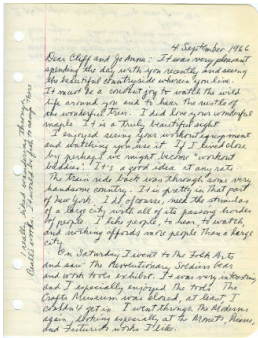 4 September 1966
Dear Cliff and JoAnn: It was very pleasant
spending the day with you recently and seeing
the beautiful countryside wherein you live.
It must be a constant joy to watch the wild
life around you and to hear the rustle of
the wonderful trees. I did love your wonderful
maple. It is a truly beautiful sight.
I enjoyed seeing your workout equipment
and watching you use it. If I lived close
by perhaps we might become "workout
buddies." It's a good idea at any rate.
The train ride back was through some very
handsome country. It is pretty in that part
of New York. I do, of course, need the stimulus
of a large city with all of its passing hordes
of people. I like people to hear, to watch,
and nothing affords more people than a large
city.
On Saturday I went to the Folk Arts
and saw the Revolutionary Soldiers Gear
and work tools exhibit. It was very interesting
and I especially enjoyed the tools. The
Crafts Museum was closed, at least, I
couldn't get in. I went to the Moderns
again, looking especially at the Monets,
and Futurist works I like.
I really liked
would be